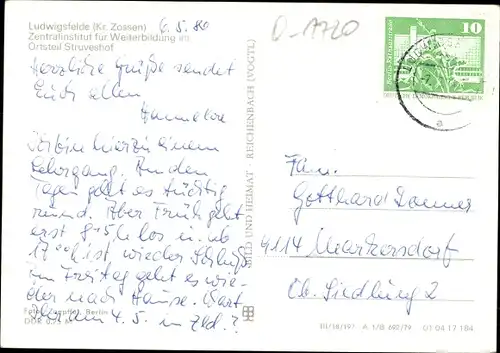 Ludwigsfelde (Kr. Zossen) 6.5.80
Zentralinstitut für Weiterbildung im
Ortsteil Struveshof
D-1720
10
Herzliche Grüße sendet
Euch allen
Hannelore
Ich bin hier zu einem
Lehrgang. An den
Tagen geht es tüchtig
rund. Aber Früh geht
erst los u. ab
17.00 ist wieder Schluß
im Freitag geht es wie-
der nach Hause. Wart
Ihr am 4.5. in Zld.?
Fam.
Gotthard
9114 Markersdorf
Ob. Siedlung 2
BILD UND HEIMAT · REICHENBACH (VOGTL)
Berlin
DDR 0,25 M
III/18/197 A 1/B 692/79 01 04 17 184